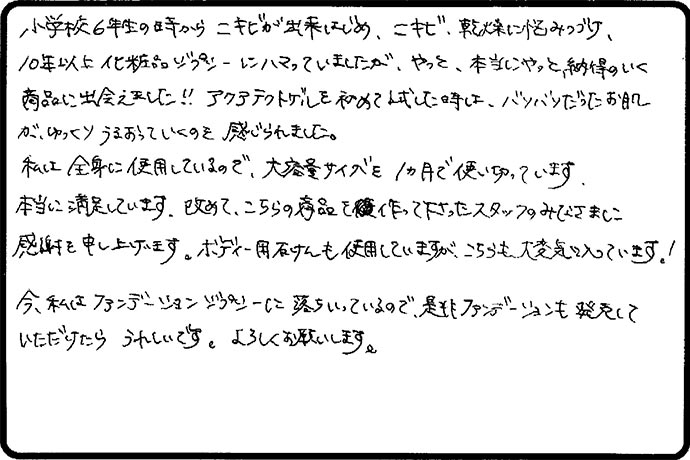 小学校6年生の時から ニキビが出来はじめ、ニキビ、乾燥に悩みつづけ、
10年以上 化粧品ジプシーにハマっていましたが、やっと、本当にやっと、納得のいく
商品に出会えました!! アクアテクトゲルを初めて試した時は、バリバリだったお肌
が、ゆっくり うるおっていくのを 感じられました。
私は 全身に使用しているので、大容量サイズを 1ヵ月で使い切っています.
本当に満足しています. 改めて、こちらの商品を作って下さったスタッフのみなさまに
感謝を申し上げます。ボディー用石けんも使用していますが、こちらも大変気に入っています。!
今、私は ファンデーションジプシーに 落ちいっているので、是非ファンデーションも 発売して
いただけたら うれしいです。よろしくお願いします。